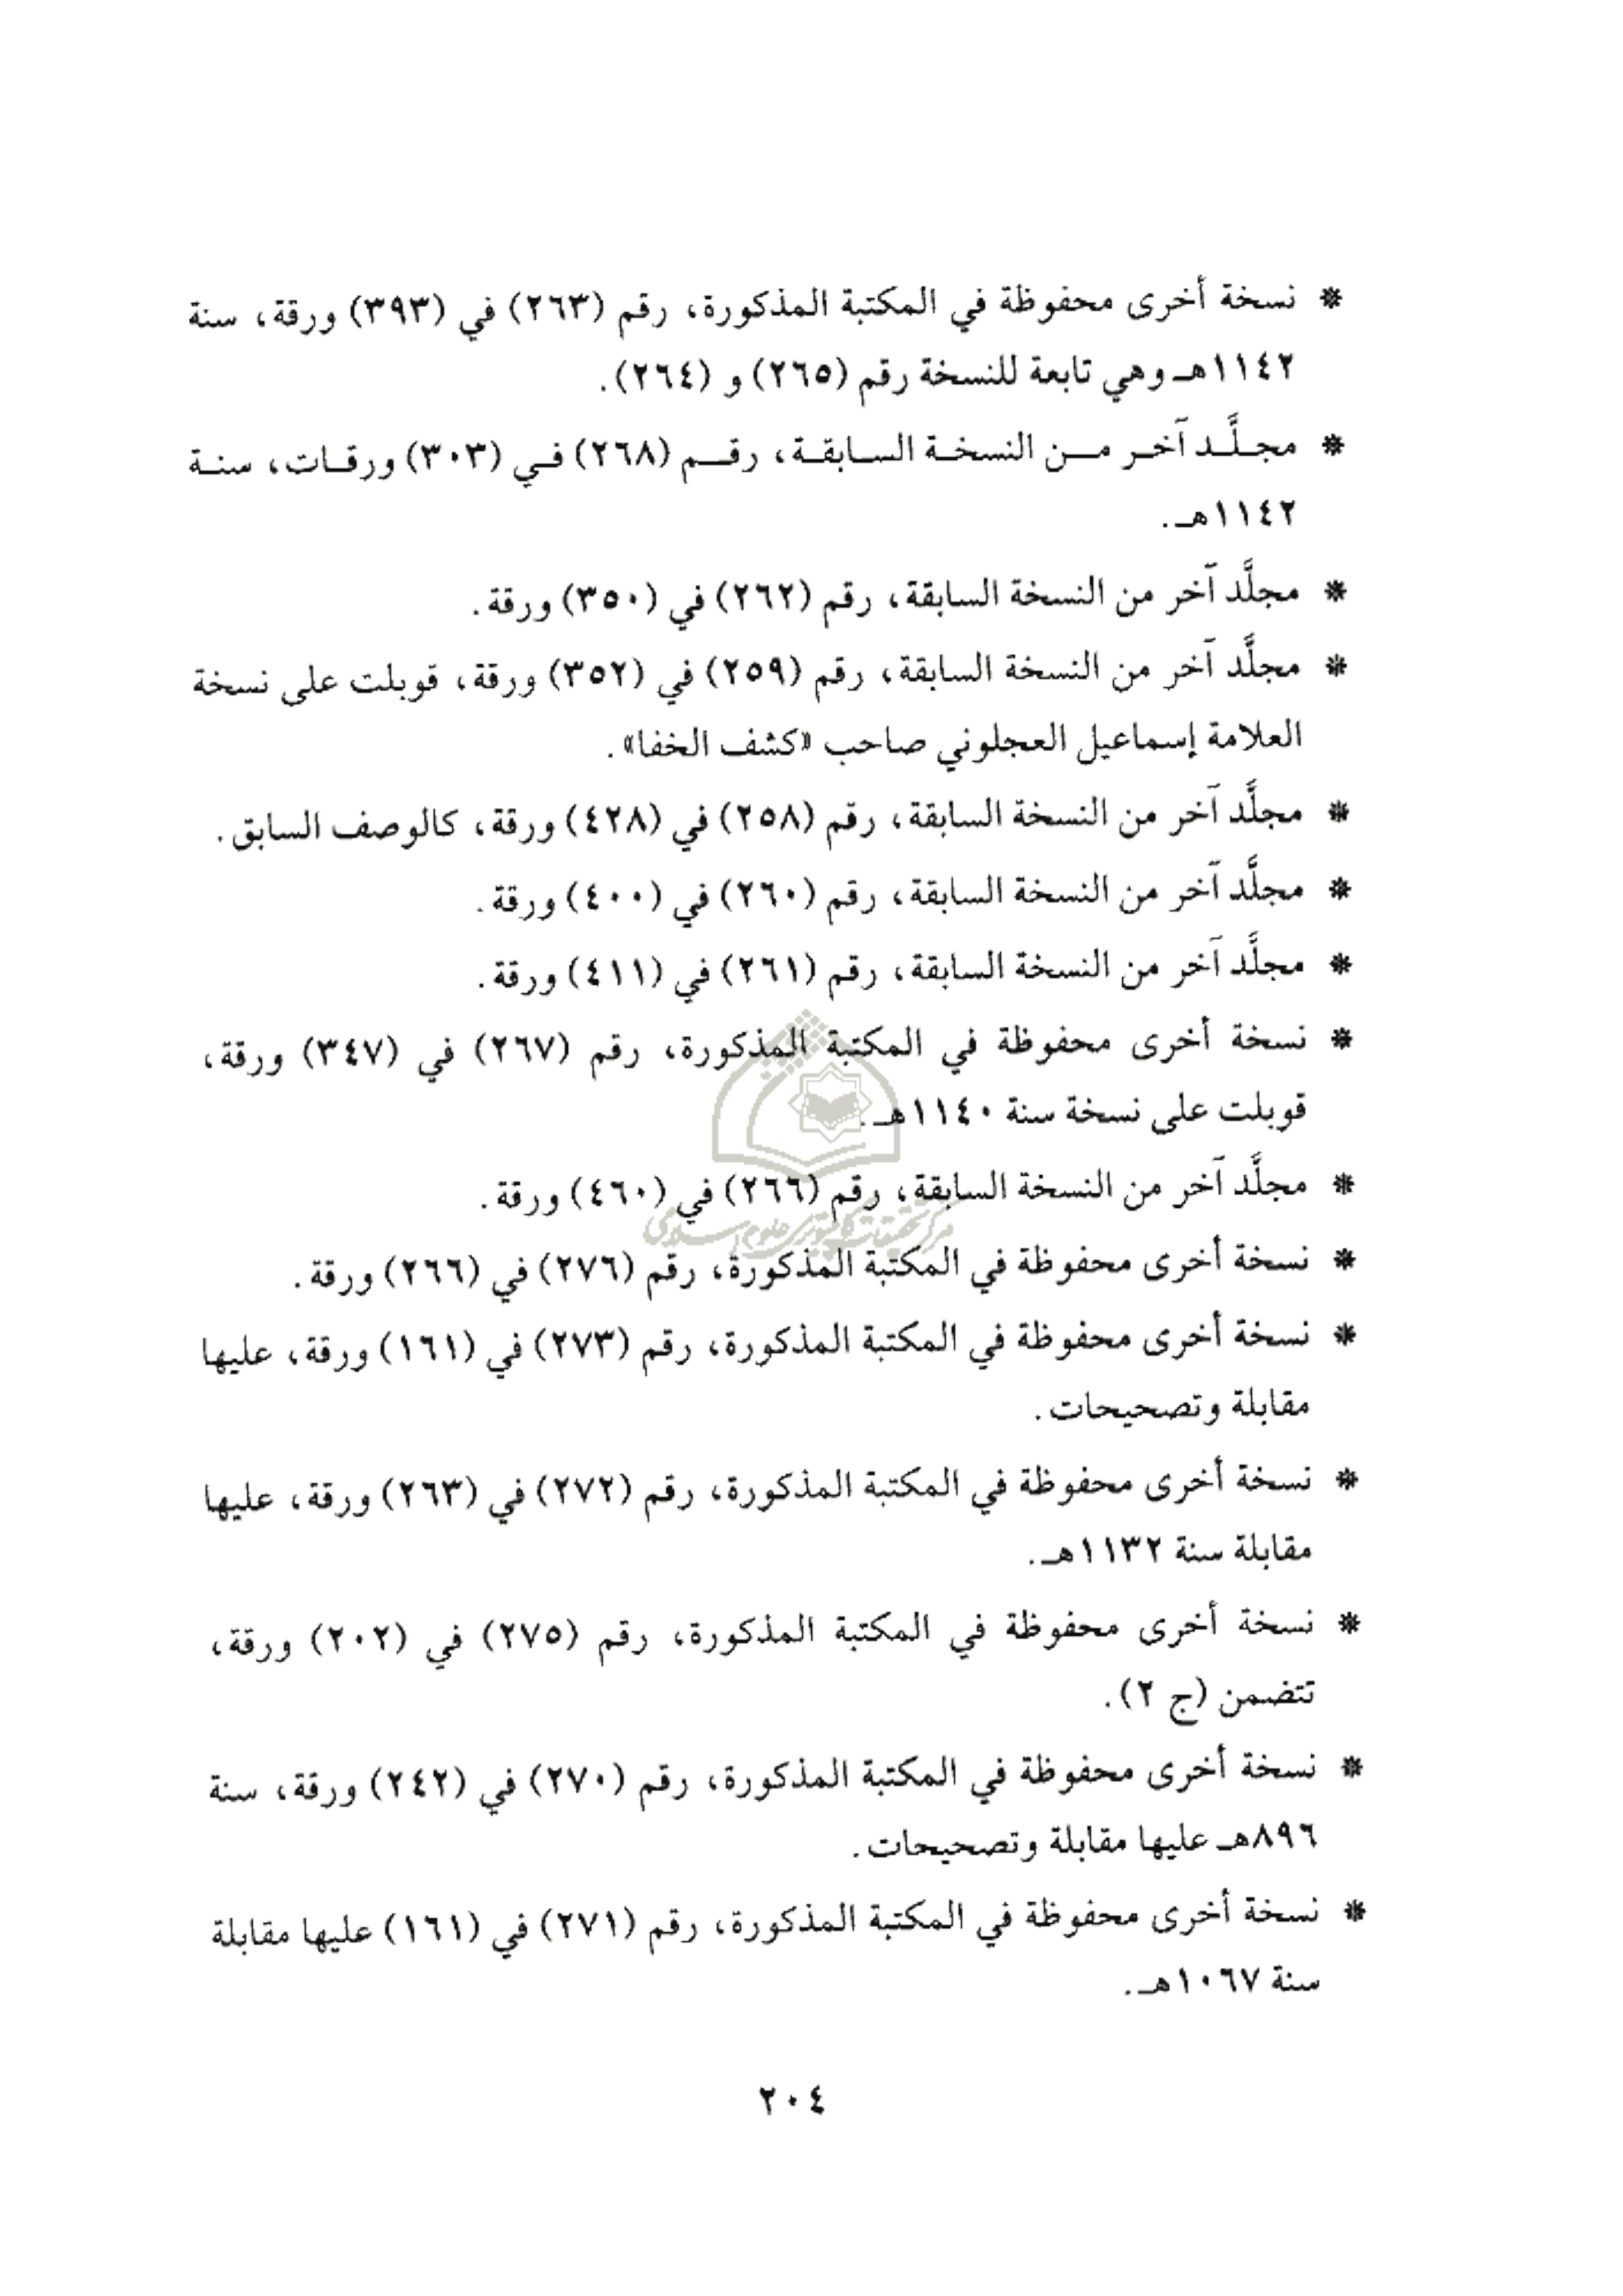 * نسخة أخرى محفوظة في المكتبة المذكورة، رقم (٢٦٣) في (٣٩٣) ورقة، سنة
١١٤٢هـ وهي تابعة للنسخة رقم (٢٦٥) و (٢٦٤).
* مجلَّد آخر من النسخة السابقة، رقم (٢٦٨) في (٣٠٣) ورقات، سنة
١١٤٢هـ.
* مجلَّد آخر من النسخة السابقة، رقم (٢٦٢) في (٣٥٠) ورقة.
* مجلَّد آخر من النسخة السابقة، رقم (٢٥٩) في (٣٥٢) ورقة، قوبلت على نسخة
العلامة إسماعيل العجلوني صاحب «كشف الخفا».
* مجلَّد آخر من النسخة السابقة، رقم (٢٥٨) في (٤٢٨) ورقة، كالوصف السابق.
* مجلَّد آخر من النسخة السابقة، رقم (٢٦٠) في (٤٠٠) ورقة.
* مجلَّد آخر من النسخة السابقة، رقم (٢٦١) في (٤١١) ورقة.
* نسخة أخرى محفوظة في المكتبة المذكورة، رقم (٢٦٧) في (٣٤٧) ورقة،
قوبلت على نسخة سنة ١١٤٠هـ.
* مجلَّد آخر من النسخة السابقة، رقم (٢٦٦) في (٤٦٠) ورقة.
مرکز تحقیقات کامپیوتری علوم اسلامی
* نسخة أخرى محفوظة في المكتبة المذكورة، رقم (٢٧٦) في (٢٦٦) ورقة.
* نسخة أخرى محفوظة في المكتبة المذكورة، رقم (٢٧٣) في (١٦١) ورقة، عليها
مقابلة وتصحيحات.
* نسخة أخرى محفوظة في المكتبة المذكورة، رقم (٢٧٢) في (٢٦٣) ورقة، عليها
مقابلة سنة ١١٣٢هـ.
* نسخة أخرى محفوظة في المكتبة المذكورة، رقم (٢٧٥) في (٢٠٢) ورقة،
تتضمن (ج ٢).
* نسخة أخرى محفوظة في المكتبة المذكورة، رقم (٢٧٠) في (٢٤٢) ورقة، سنة
٨٩٦هـ عليها مقابلة وتصحيحات.
* نسخة أخرى محفوظة في المكتبة المذكورة، رقم (٢٧١) في (١٦١) عليها مقابلة
سنة ١٠٦٧هـ.
٢٠٤